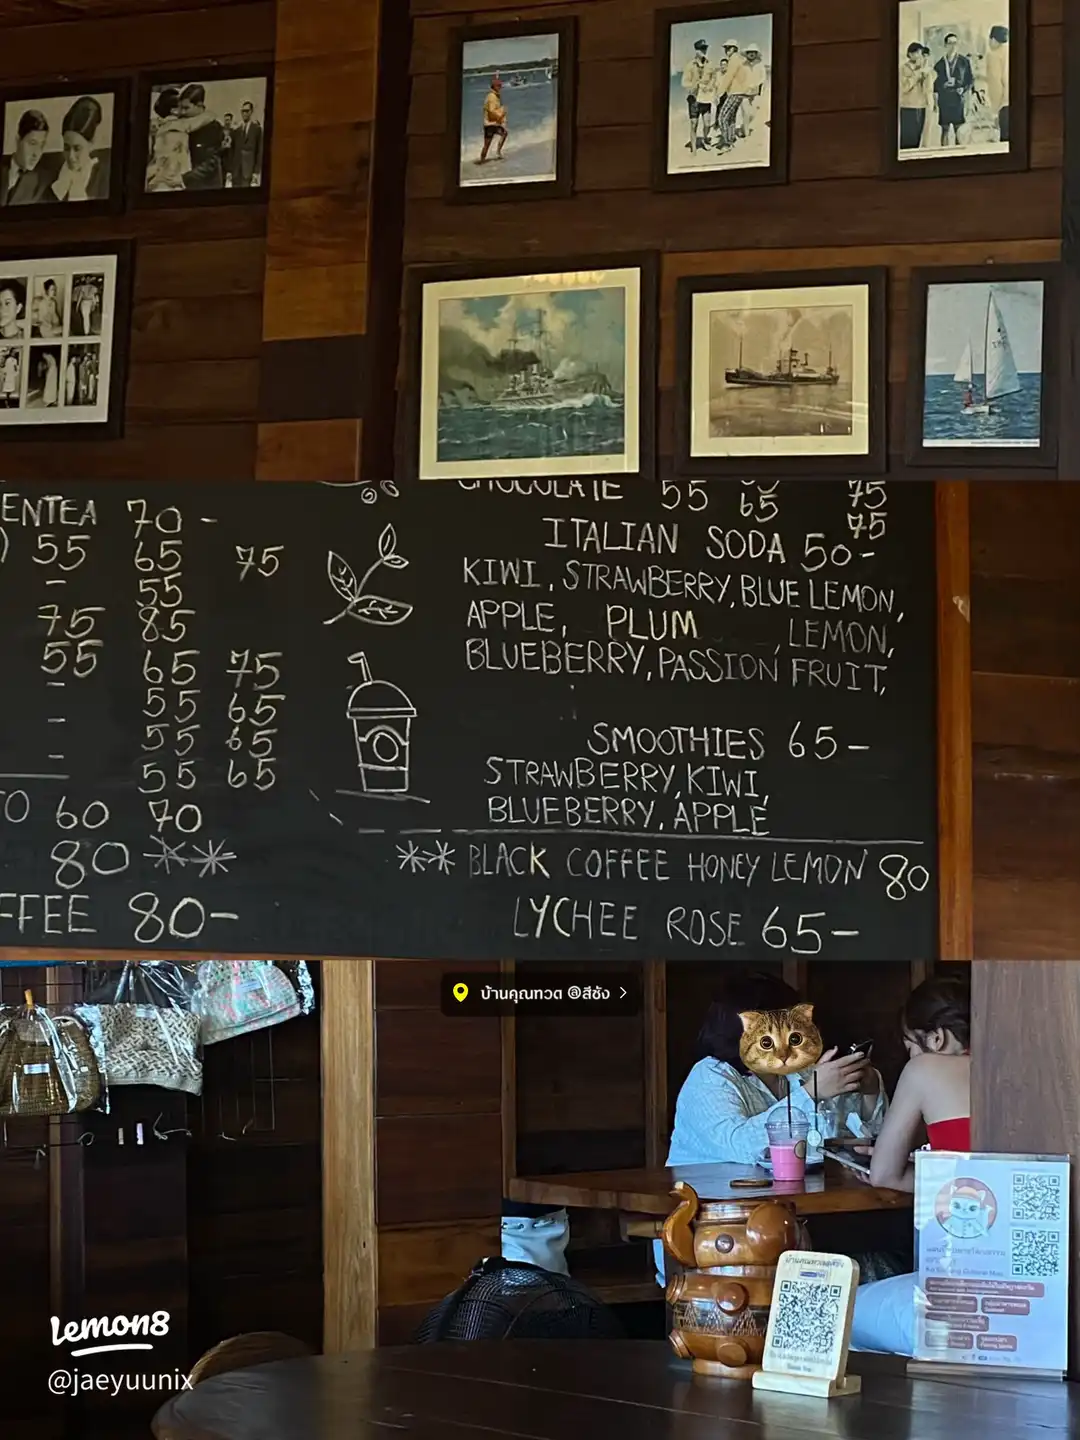 CHOCOLATE 55 65 75
75
ENTEA 70-
) 55 65 75
- 55
75 85
55 65 75
- 55 65
- 55 65
- 55 65
O 60 70
80 **
FFEE 80-
ITALIAN SODA 50-
KIWI, STRAWBERRY, BLUE LEMON,
APPLE, PLUM , LEMON,
BLUEBERRY, PASSION FRUIT,
SMOOTHIES 65-
STRAWBERRY, KIWI,
BLUEBERRY, APPLE
** BLACK COFFEE HONEY LEMON 80
LYCHEE ROSE 65-
บ้านคุณทวด @สีชัง >
Lemon8
@jaeyuunix